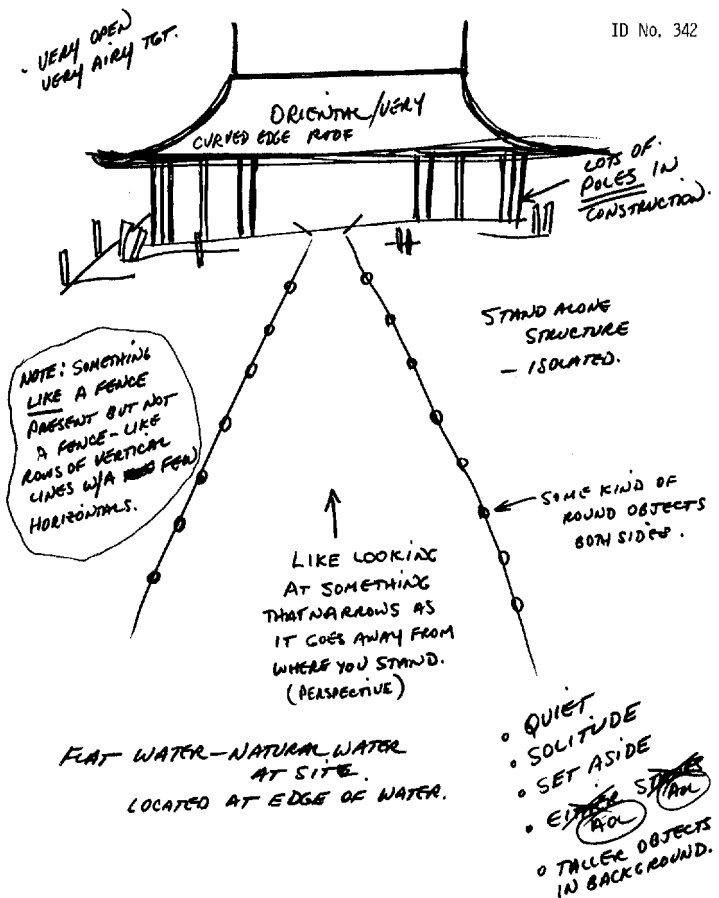 ID No. 342
- VERY OPEN
VERY AIRY TGT.
ORIENTAL/VERY
CURVED EDGE ROOF
LOTS OF
POLES IN
CONSTRUCTION.
STAND ALONE
STRUCTURE
- ISOLATED.
NOTE: SOMETHING
LIKE A FENCE
PRESENT BUT NOT
A FENCE-LIKE
ROWS OF VERTICAL
LINES W/A FEW
HORIZONTALS.
SOME KIND OF
ROUND OBJECTS
BOTH SIDES.
LIKE LOOKING
AT SOMETHING
THAT NARROWS AS
IT GOES AWAY FROM
WHERE YOU STAND.
(PERSPECTIVE)
FLAT WATER-NATURAL WATER
AT SITE.
LOCATED AT EDGE OF WATER.
• QUIET
• SOLITUDE
• SET ASIDE
• EITHER
AOL AOL
• TALLER OBJECTS
IN BACKGROUND.